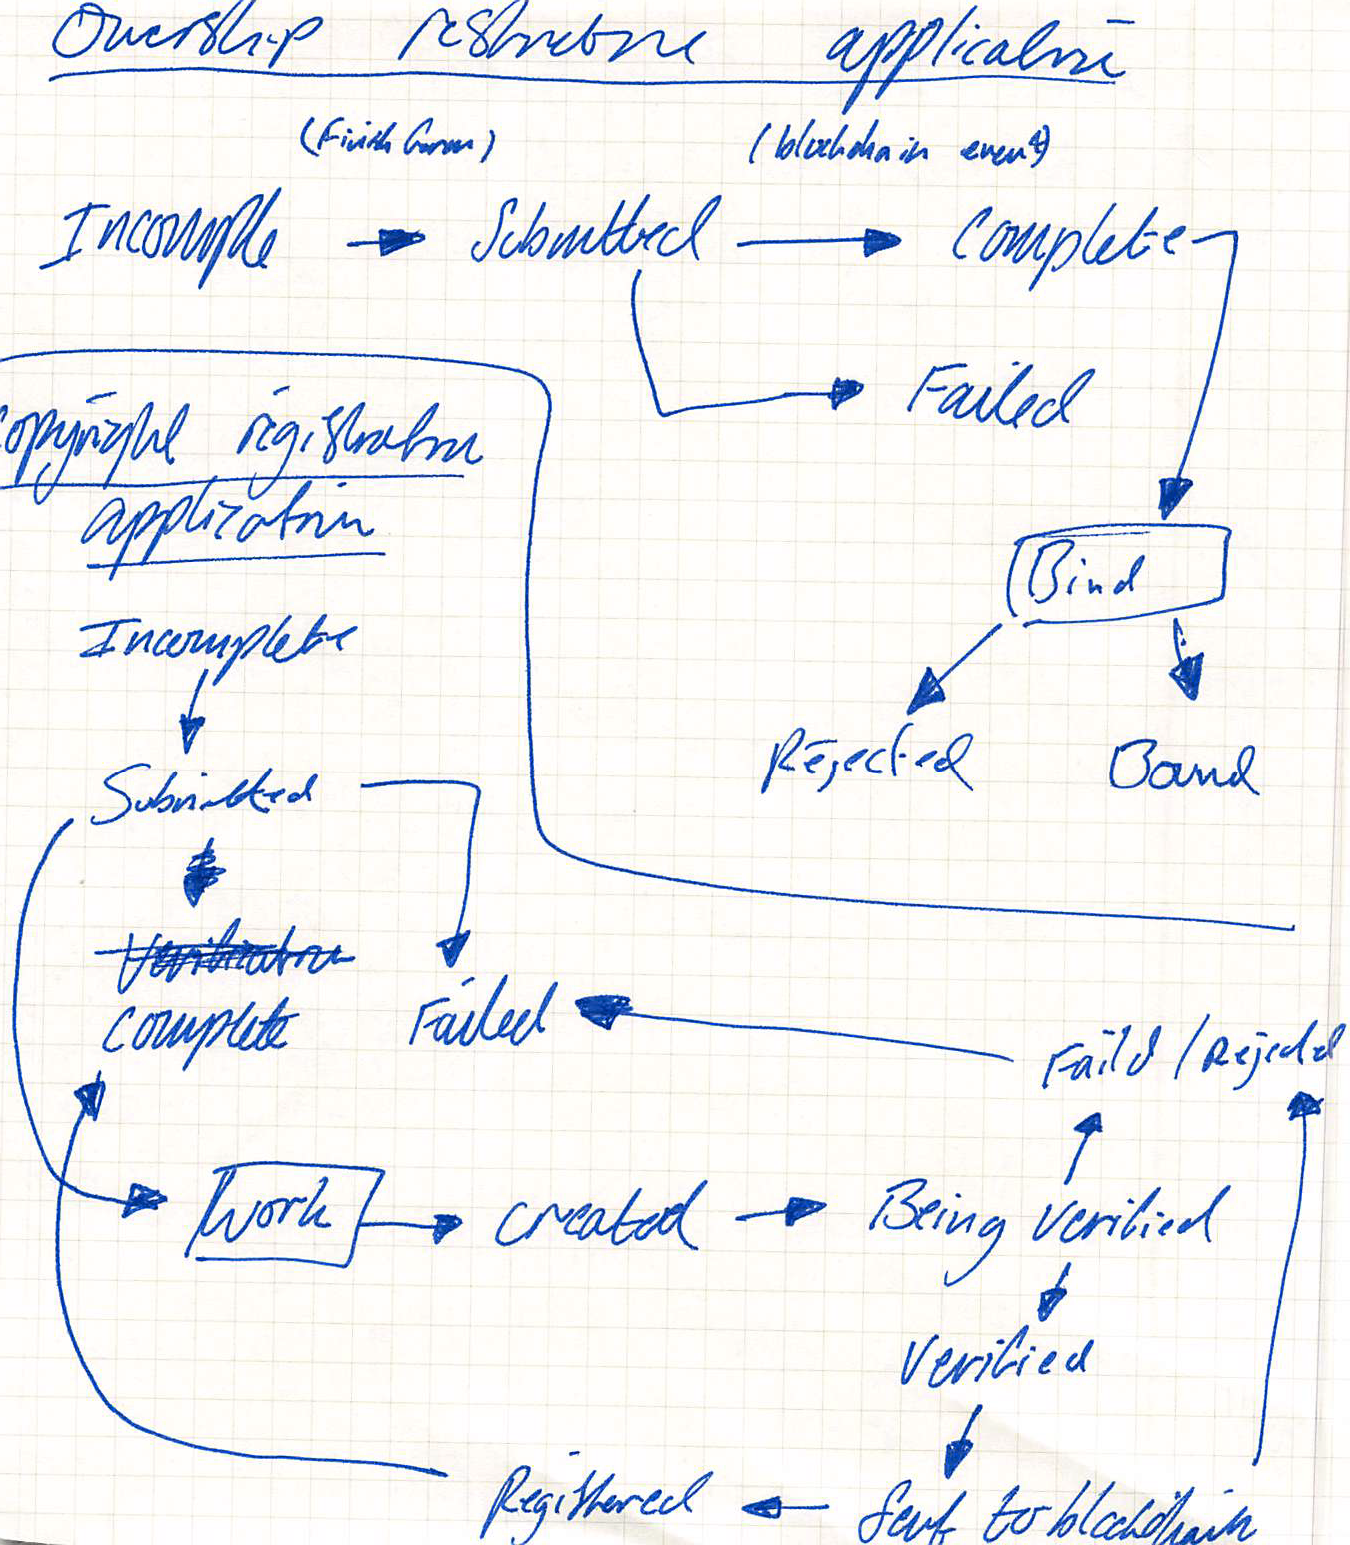 Ownership restructure application
(Finish form) (blockchain event)
Incomplte Submitted Complete
Failed
Copyright registration
application
Bind
Incomplete
Rejected Bound
Submitted
Verification
Complete Failed
Faild / Rejected
Work Created Being verified
Verified
Registered Sent to blockchain